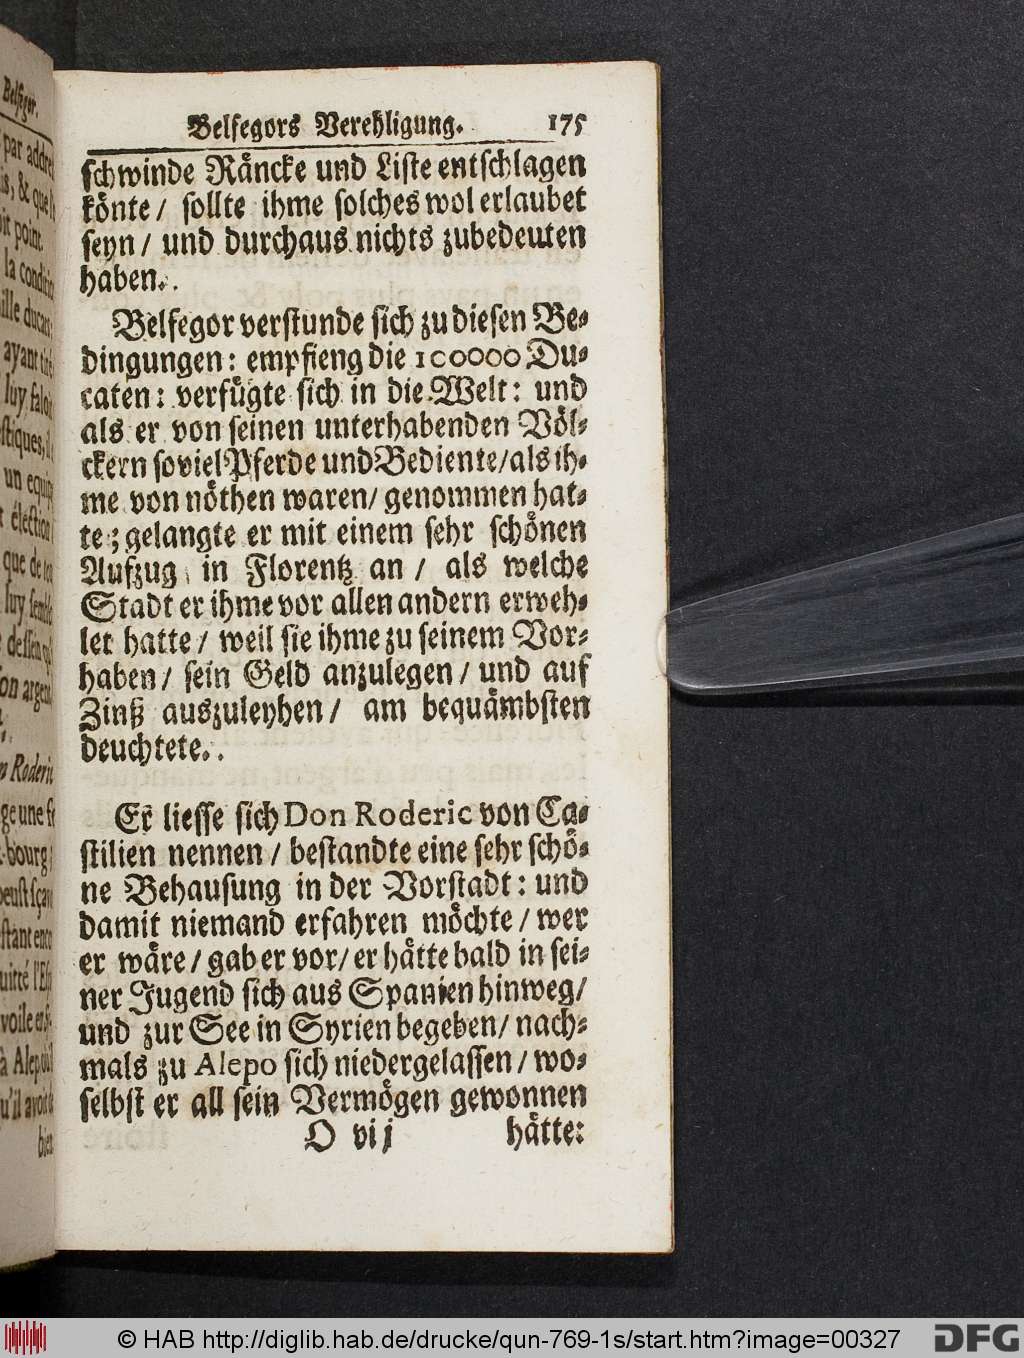 Belfegor.
par addre
is, & que l
oit point.
la conditio
ille ducats
ayant tiré
luy faloi
estiques, il
un equip
t élection
que de to
luy semble
dessein qu'
on argen
n Roderic
ge une
bourg
peust sçav
stant enco
uitté l'Es
voile
à Alep où
u'il avoit
bien
Belfegors Verehligung. 175
schwinde Räncke und Liste entschlagen
könte / sollte ihme solches wol erlaubet
seyn / und durchaus nichts zubedeuten
haben.
Belfegor verstunde sich zu diesen Be-
dingungen: empfieng die 100000 Du-
caten: verfügte sich in die Welt: und
als er von seinen unterhabenden Völ-
ckern soviel Pferde und Bediente / als ih-
me von nöthen waren / genommen hat-
te; gelangte er mit einem sehr schönen
Aufzug in Florentz an / als welche
Stadt er ihme vor allen andern erweh-
let hatte / weil sie ihme zu seinem Vor-
haben / sein Geld anzulegen / und auf
Zinß auszuleyhen / am bequämbsten
deuchtete.
Er liesse sich Don Roderic von Ca-
stilien nennen / bestandte eine sehr schö-
ne Behausung in der Vorstadt: und
damit niemand erfahren möchte / wer
er wäre / gab er vor / er hätte bald in sei-
ner Jugend sich aus Spanien hinweg /
und zur See in Syrien begeben / nach-
mals zu Alepo sich niedergelassen / wo-
selbst er all sein Vermögen gewonnen
O vij hätte:
© HAB http://diglib.hab.de/drucke/qun-769-1s/start.htm?image=00327
DFG